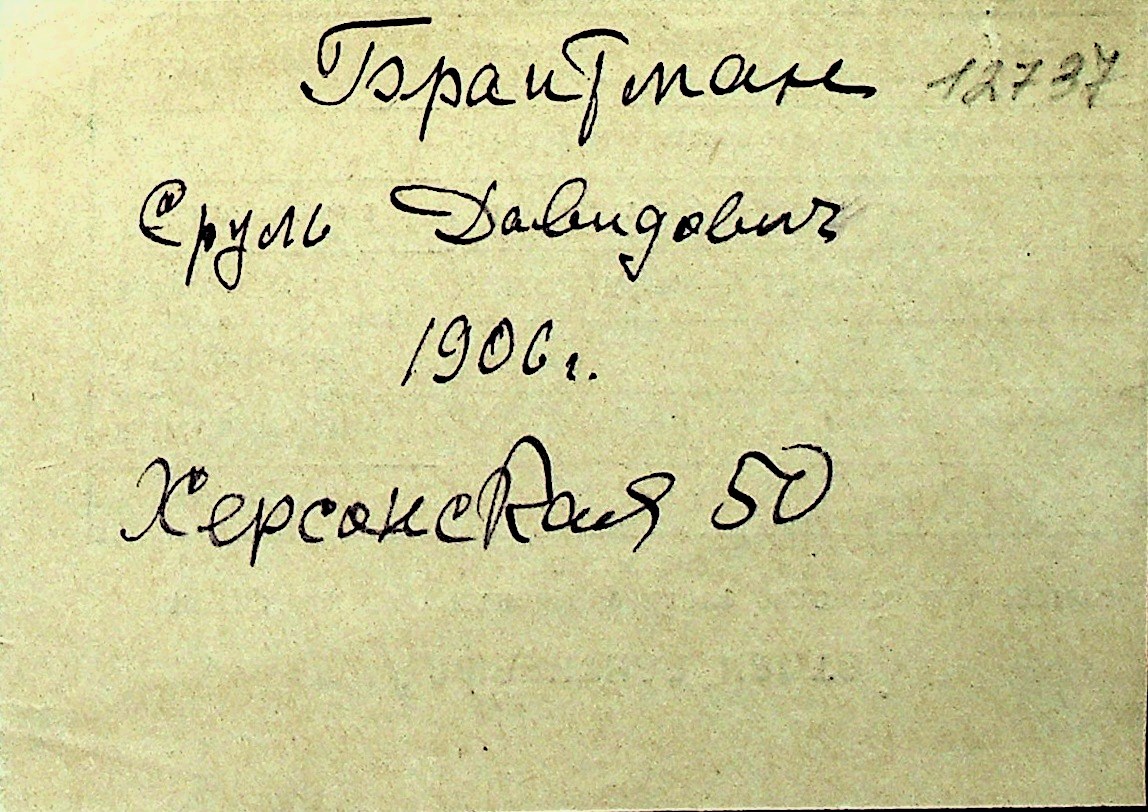 Брайтман 12737
Сруль Давидович
1906 г.
Херсонская 50